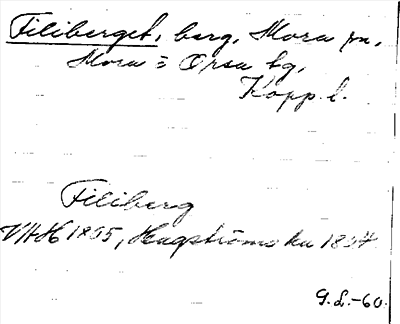 Filiberget, berg, Mora sn,
Mora o Orsa tg,
Kopp. l.
Filiberg
VAH 1805, Hagströms ka 1804
G.L.-60.